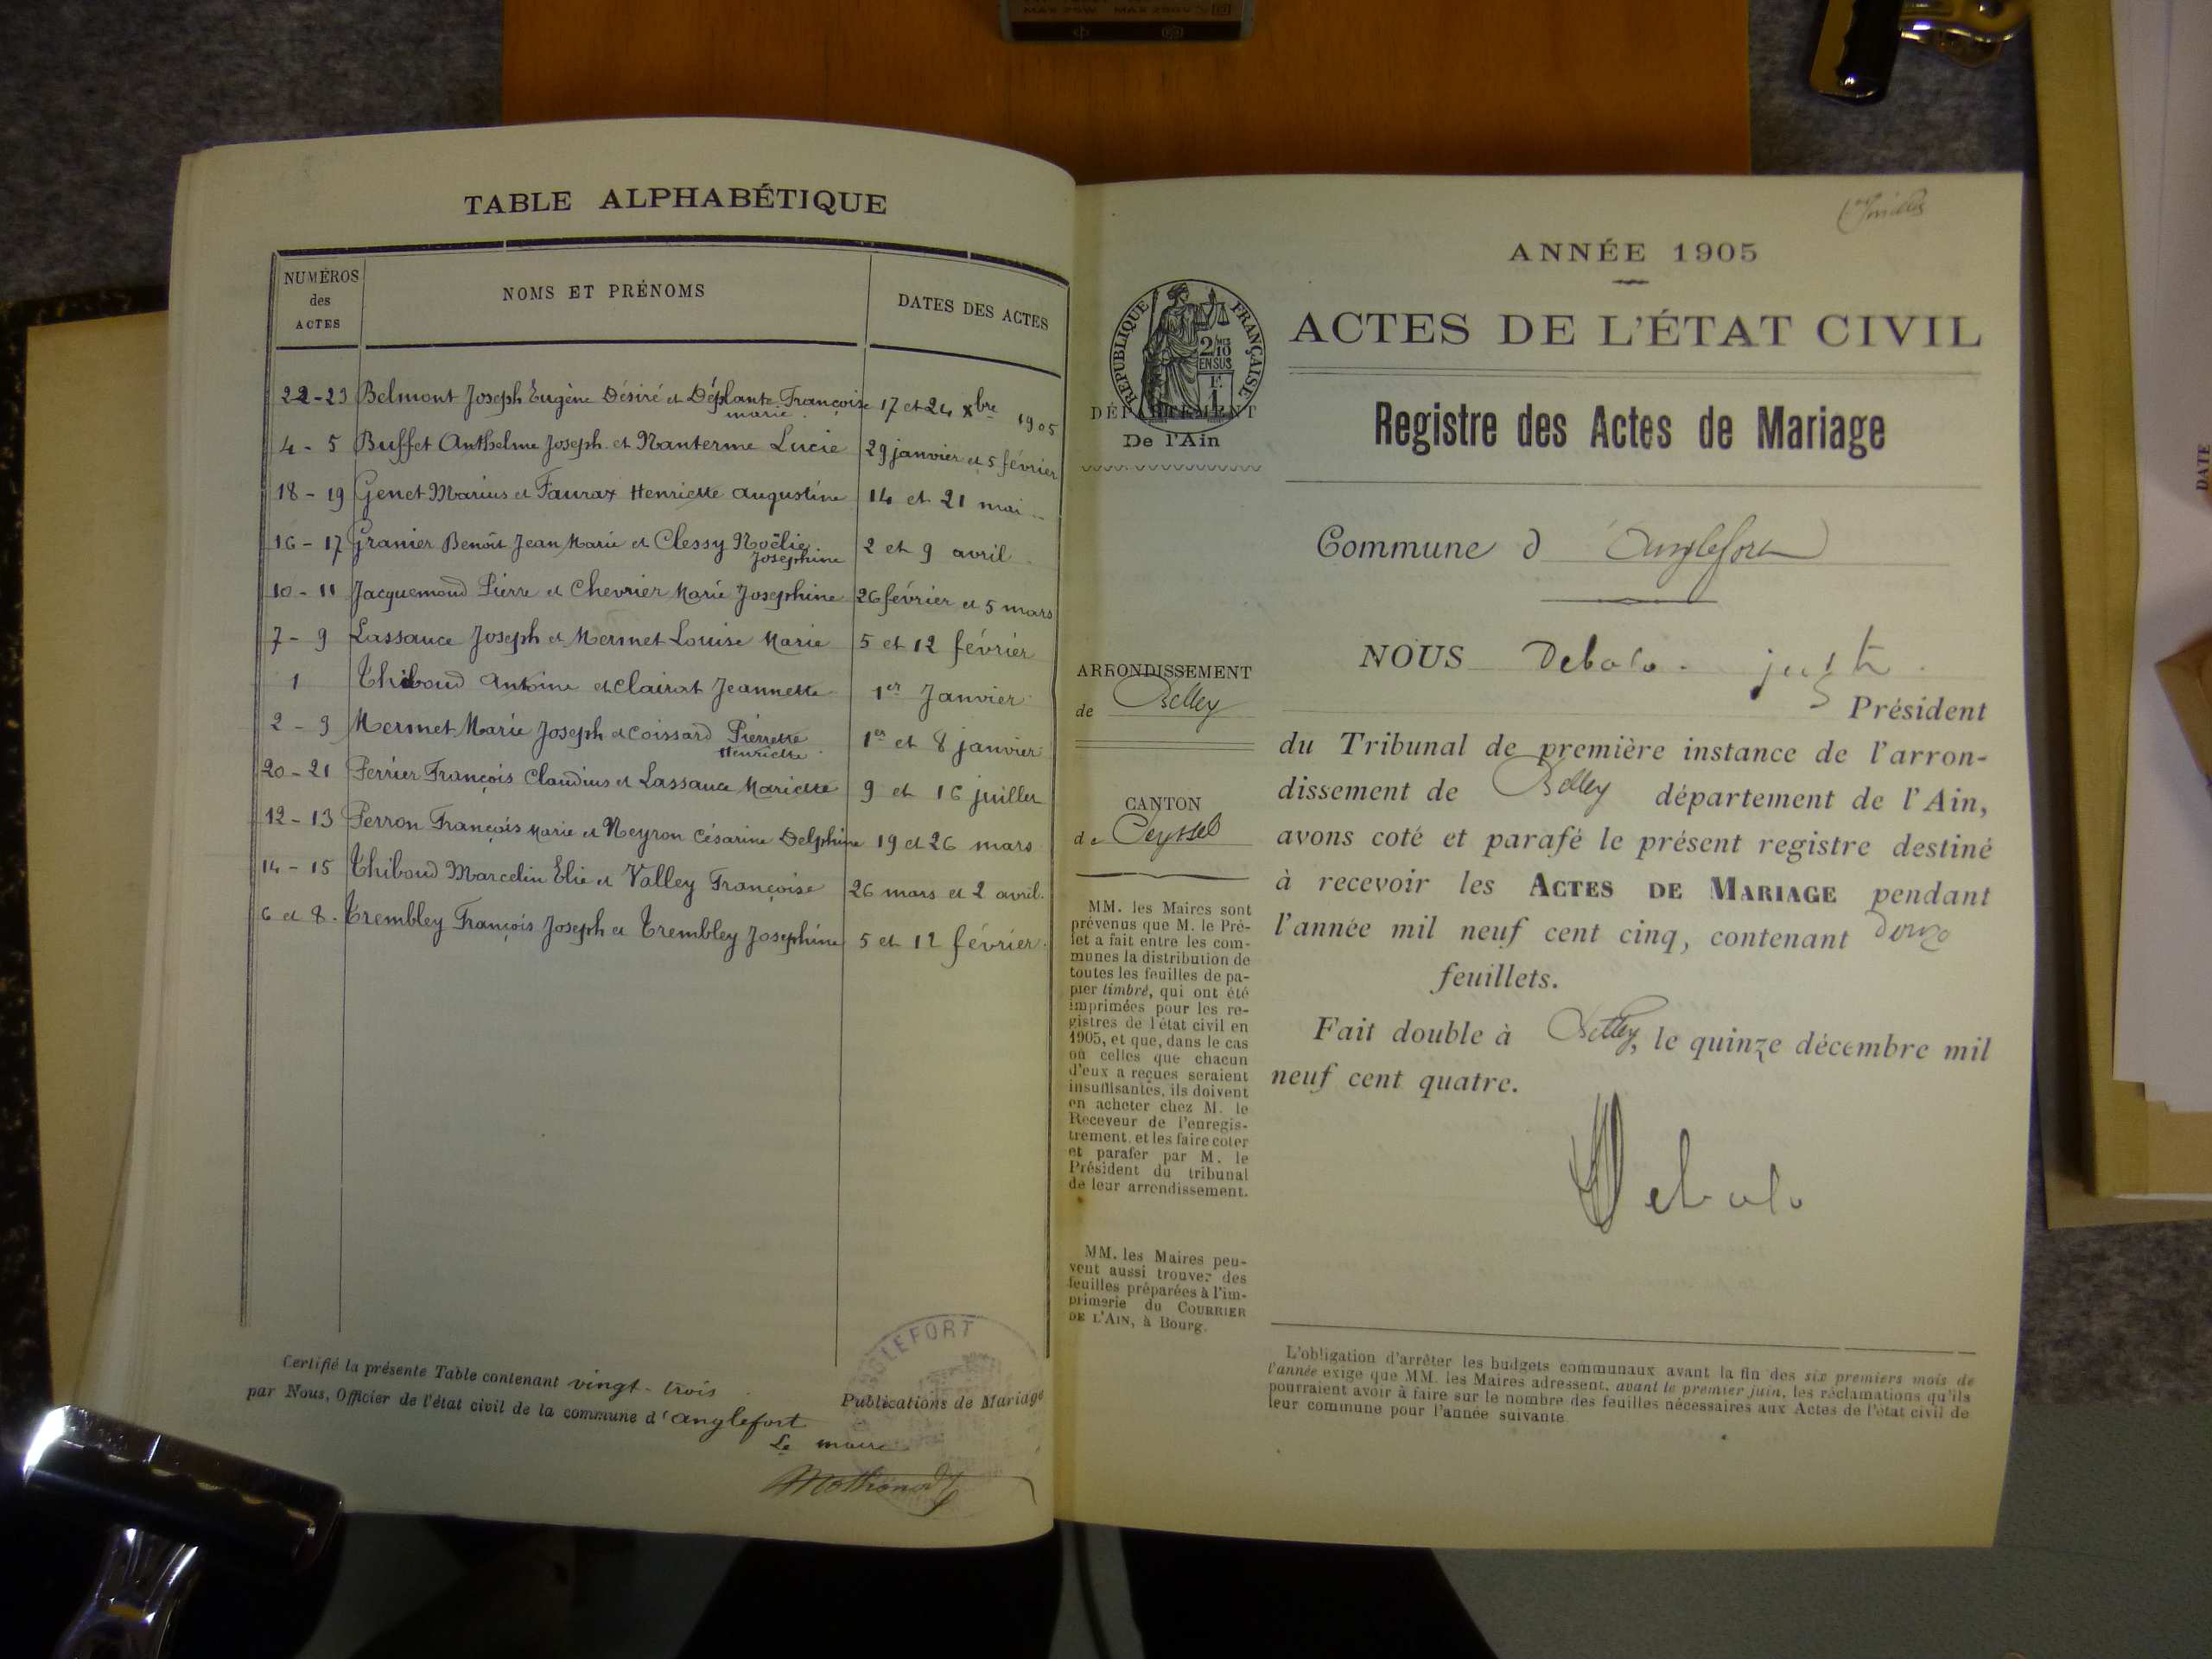 TABLE ALPHABÉTIQUE
NUMÉROS
des
ACTES
NOMS ET PRÉNOMS
DATES DES ACTES
22-23 Belmont Joseph Eugène Désiré et Déplante Françoise 17 et 24 xbre 1905
marie
4-5 Buffet Anthelme Joseph et Nanterme Lucie 29 janvier et 5 février
18-19 Genet Marius et Faurax Henriette augustine 14 et 21 mai
16-17 Granier Benoit Jean Marie et Clessy Noëlie 2 et 9 avril
Josephine
10-11 Jacquemoud Pierre et Chevrier Marie Josephine 26 février et 5 mars
7-9 Lassauce Joseph et Mermet Louise Marie 5 et 12 février
1 Thiboud Antoine et Clairat Jeannette 1er Janvier
2-3 Mermet Marie Joseph et Coissard Pierrette 1er et 8 janvier
Henriette
20-21 Perrier François Claudius et Lassauce Mariette 9 et 16 juillet
12-13 Perron François Marie et Neyron Césarine Delphine 19 et 26 mars
14-15 Thiboud Marcelin Elie et Valley Françoise 26 mars et 2 avril.
6 et 8. Trembley François Joseph et Trembley Josephine 5 et 12 février.
Certifié la présente Table contenant vingt-trois Publications de Mariage
par Nous, Officier de l'état civil de la commune d'anglefort
Le maire
ANGLEFORT
ANNÉE 1905
ACTES DE L'ÉTAT CIVIL
Registre des Actes de Mariage
RÉPUBLIQUE FRANÇAISE
2/10 EN SUS
F.
1
DÉPARTEMENT
De l'Ain
Commune d Anglefort
ARRONDISSEMENT
de Belley
CANTON
de Seyssel
MM. les Maires sont
prévenus que M. le Pré-
fet a fait entre les com-
munes la distribution de
toutes les feuilles de pa-
pier timbré, qui ont été
imprimées pour les re-
gistres de l'état civil en
1905, et que, dans le cas
où celles que chacun
d'eux a reçues seraient
insuffisantes, ils doivent
en acheter chez M. le
Receveur de l'enregis-
trement, et les faire coter
et parafer par M. le
Président du tribunal
de leur arrondissement.
MM. les Maires peu-
vent aussi trouver des
feuilles préparées à l'im-
primerie du COURRIER
DE L'AIN, à Bourg.
NOUS Debolo. juste.
Président
du Tribunal de première instance de l'arron-
dissement de Belley département de l'Ain,
avons coté et parafé le présent registre destiné
à recevoir les ACTES DE MARIAGE pendant
l'année mil neuf cent cinq, contenant douze
feuillets.
Fait double à Belley, le quinze décembre mil
neuf cent quatre.
Debolo
L'obligation d'arrêter les budgets communaux avant la fin des six premiers mois de
l'année exige que MM. les Maires adressent, avant le premier juin, les réclamations qu'ils
pourraient avoir à faire sur le nombre des feuilles nécessaires aux Actes de l'état civil de
leur commune pour l'année suivante.
DATE